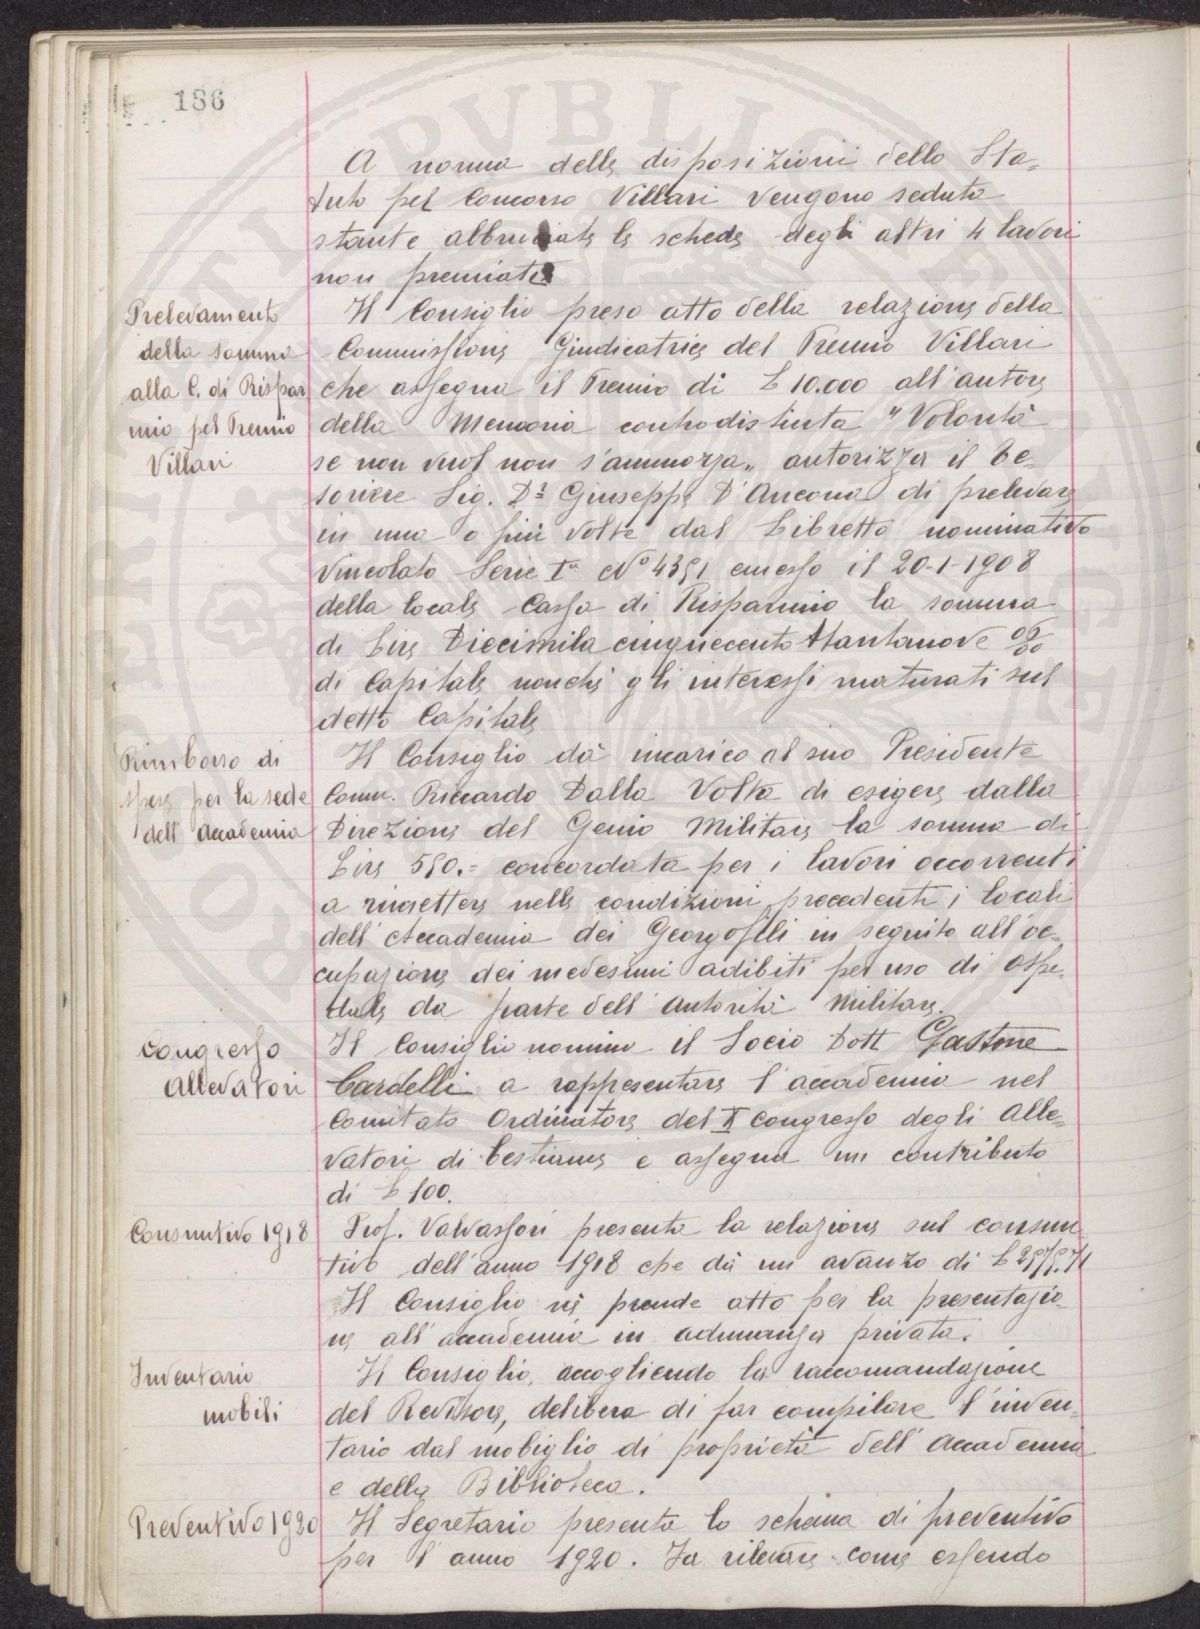 186
A norma delle disposizioni dello Sta=
tuto pel Concorso Villari vengono seduta
stante abbruciate le schede degli altri 4 lavori
non premiati
Prelevamento
della somma
alla C. di Rispar
mio pel Premio
Villari
Il Consiglio preso atto della relazione della
Commissione Giudicatrice del Premio Villari
che assegna il Premio di £ 10.000 all'autore
della Memoria controdistinta "Volontà
se non vuol non s'ammorza„ autorizza il te=
soriere Sig. Dr Giuseppe D'Ancona di prelevare
in una o più volte dal Libretto nominativo
vincolato Serie Ia No 4351 emesso il 20-1-1908
della locale Cassa di Risparmio la somma
di Lire Diecimila cinquecento ttantanove
di Capitale nonchè gli interessi maturati sul
detto Capitale
Rimborso di
spese per la sede
dell'Accademia
Il Consiglio dà incarico al suo Presidente
Comm. Riccardo Dalla Volta di esigere dalla
Direzione del Genio Militare la somma di
Lire 550.= concordata per i lavori occorrenti
a rimettere nelle condizioni precedenti i locali
dell'Accademia dei Georgofili in seguito all'oc=
cupazione dei medesimi adibiti per uso di Ospe=
dale da parte dell'autorità Militare.
Congresso
Allevatori
Il Consiglio nomina il Socio Dott Gastone
Cardelli a rappresentare l'accademia nel
Comitato Ordinatore del II Congresso degli Alle=
vatori di bestiame e assegna un contributo
di £ 100.
Consuntivo 1918
Prof. Valvassori presenta la relazione sul consun
tivo dell'anno 1918 che dà un avanzo di £
Il Consiglio ne prende atto per la presentazio
ne all'accademia in adunanza privata.
Inventario
mobili
Il Consiglio, accogliendo la raccomandazione
del Revisore, delibera di far compilare l'inven=
tario dal mobiglio di proprietà dell'Accademia
e della Biblioteca.
Preventivo 1920
Il Segretario presenta lo schema di preventivo
per l'anno 1920. Fa rilevare come essendo